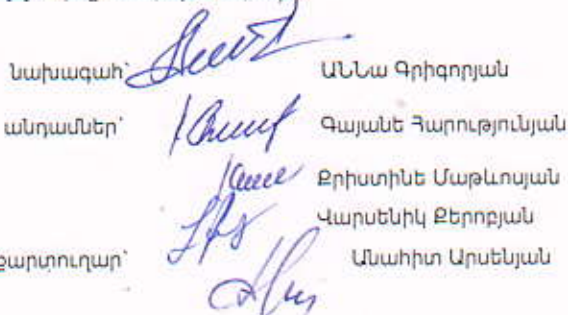 նախագահ՝ ԱՆՆա Գրիգորյան
անդամներ՝ Գայանե Հարությունյան
Քրիստինե Մաթևոսյան
Վարսենիկ Քերոբյան
քարտուղար՝ Անահիտ Արսենյան